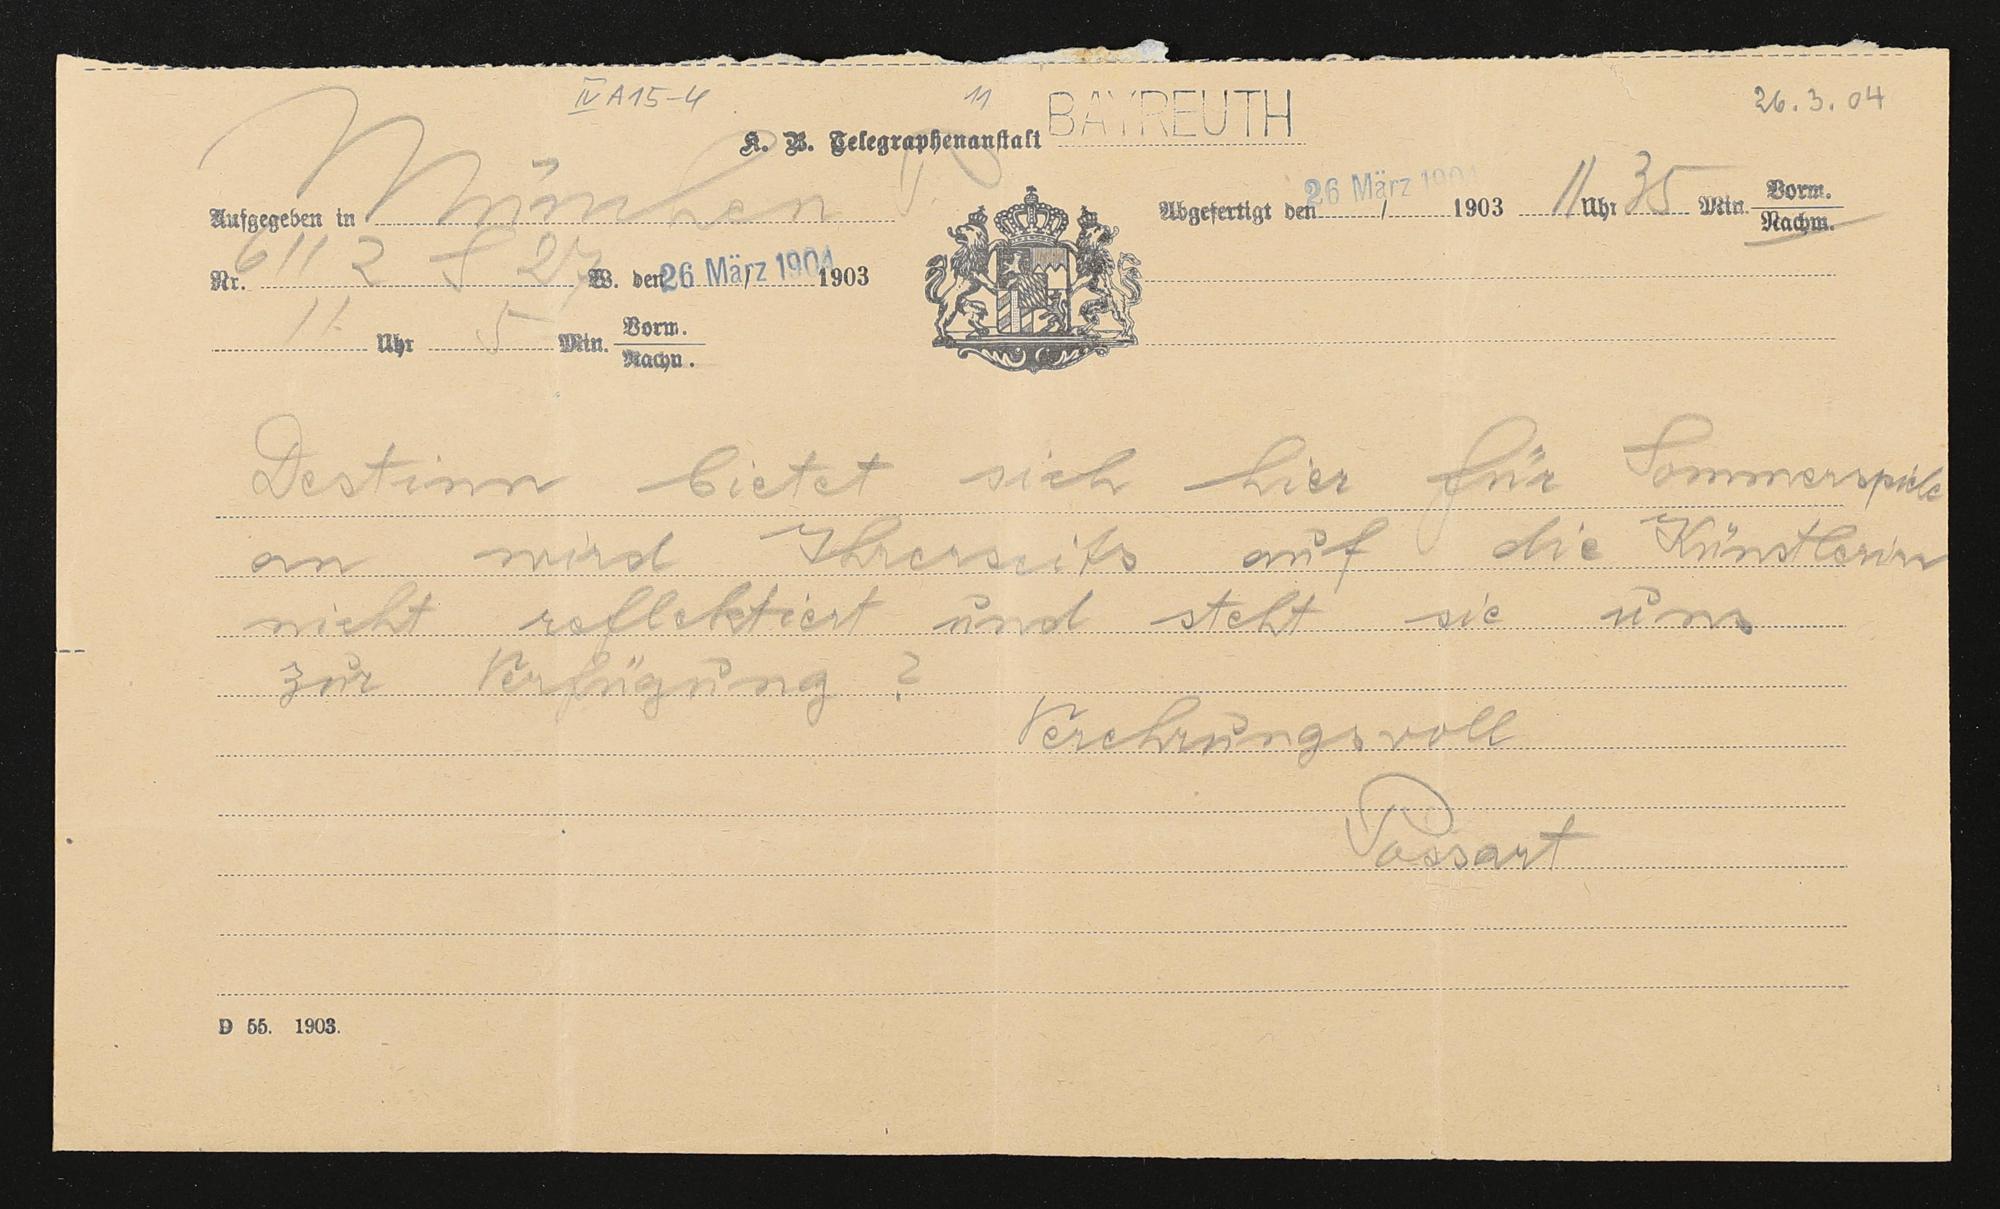 IV A 15-4 11 26.3.04
K. B. Telegraphenanstalt BAYREUTH
Aufgegeben in München
Abgefertigt den 26 März 1904 1903 11 Uhr 35 Min. Vorm. Nachm.
Nr. 6112 S 27 W. den 26 März 1904 1903
11 Uhr 5 Min. Vorm. Nachn.
Destinn bietet sich hier für Sommerspiele
an wird Ihrerseits auf die Künstlerin
nicht reflektiert und steht sie uns
zur Verfügung ?
Verehrungsvoll
Possart
D 55. 1903.